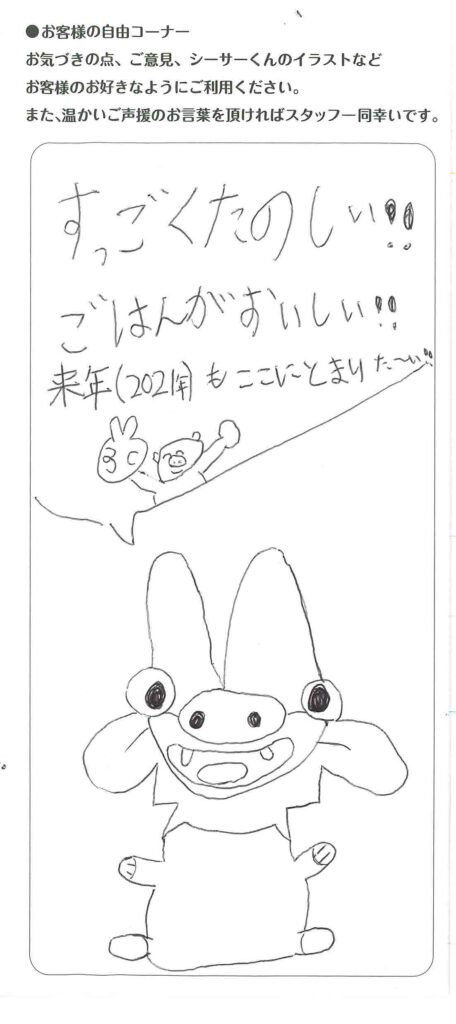 ●お客様の自由コーナー
お気づきの点、ご意見、シーサーくんのイラストなど
お客様のお好きなようにご利用ください。
また、温かいご声援のお言葉を頂ければスタッフ一同幸いです。
すっごくたのしい!!
ごはんがおいしい!!
来年(2021年)もここにとまりた〜い!!